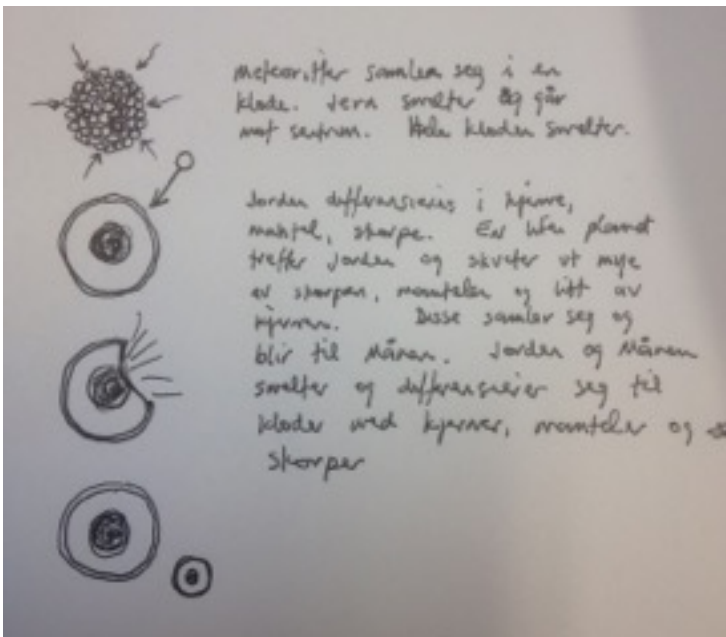 Meteoritter samler seg i en
klode. Jern smelter og går
mot sentrum. Hele kloden smelter.
Jorden differensieres i kjerne,
mantel, skorpe. En liten planet
treffer Jorden og skvetter ut mye
av skorpen, mantelen og litt av
kjernen. Disse samler seg og
blir til Månen. Jorden og Månen
smelter og differensierer seg til
kloder med kjerner, mantler og
skorper